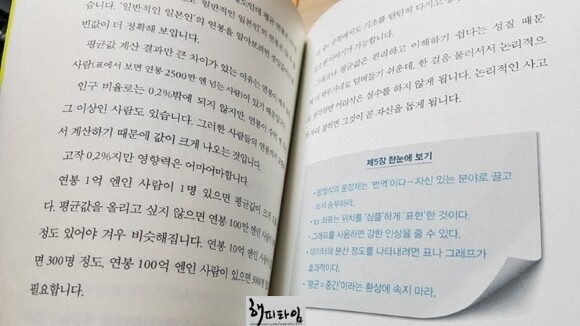 습니다. '일반적인 일본인'의 연봉을 알아보려면
빈값이 더 정확해 보입니다.
평균값 계산 결과만 큰 차이가 있는 이유는 연봉이
사람(표에서 보면 연봉 2500만 엔 넘는 사람)이 있기 때문입니다.
인구 비율로는 0.2%밖에 되지 않지만, 연봉이 수억 엔
그 이상인 사람도 있습니다. 그러한 사람들의 연봉까지
서 계산하기 때문에 값이 크게 나오는 것입니다.
고작 0.2%지만 영향력은 어마어마합니다.
연봉 1억 엔인 사람이 1명 있으면 평균값이 크게
다. 평균값을 올리고 싶지 않으면 연봉 100만 엔인 사람이
정도 있어야 겨우 비슷해집니다. 연봉 10억 엔인
면 300명 정도, 연봉 100억 엔인 사람이 있으면
필요합니다.
수학에서도 기초를 탄탄히 다지고
이야기가 가능합니다.
평균값은 편리하고 이해하기 쉽다는 성질 때문
덤벼들기 쉬운데, 한 걸음 물러서서 논리적으
생각하면 어리석은 실수를 하지 않게 됩니다. 논리적인 사고
그것이 곧 자신을 돕게 됩니다.
제5장 한눈에 보기
• 방정식의 문장제는 '번역'이다 – 자신 있는 분야로 끌고
와서 승부하라.
좌표는 위치를 '심플'하게 '표현'한 것이다.
• 그래프를 사용하면 강한 인상을 줄 수 있다.
• 데이터의 분산 정도를 나타내려면 표나 그래프가
효과적이다.
• '평균 = 중간'이라는 환상에 속지 마라.
해피타임